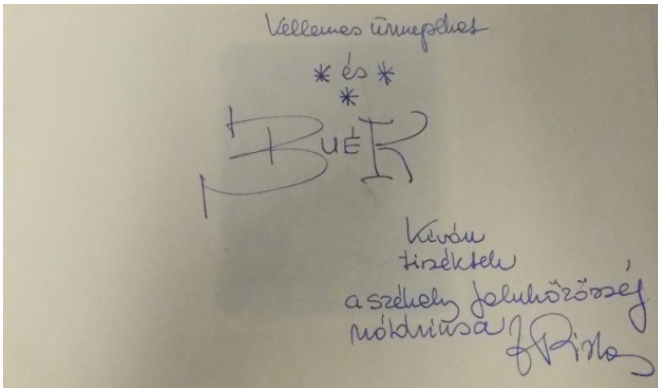 Kellemes ünnepeket
* és *
*
BUÉK
Kíván
tisztelettel
a székely faluközösség